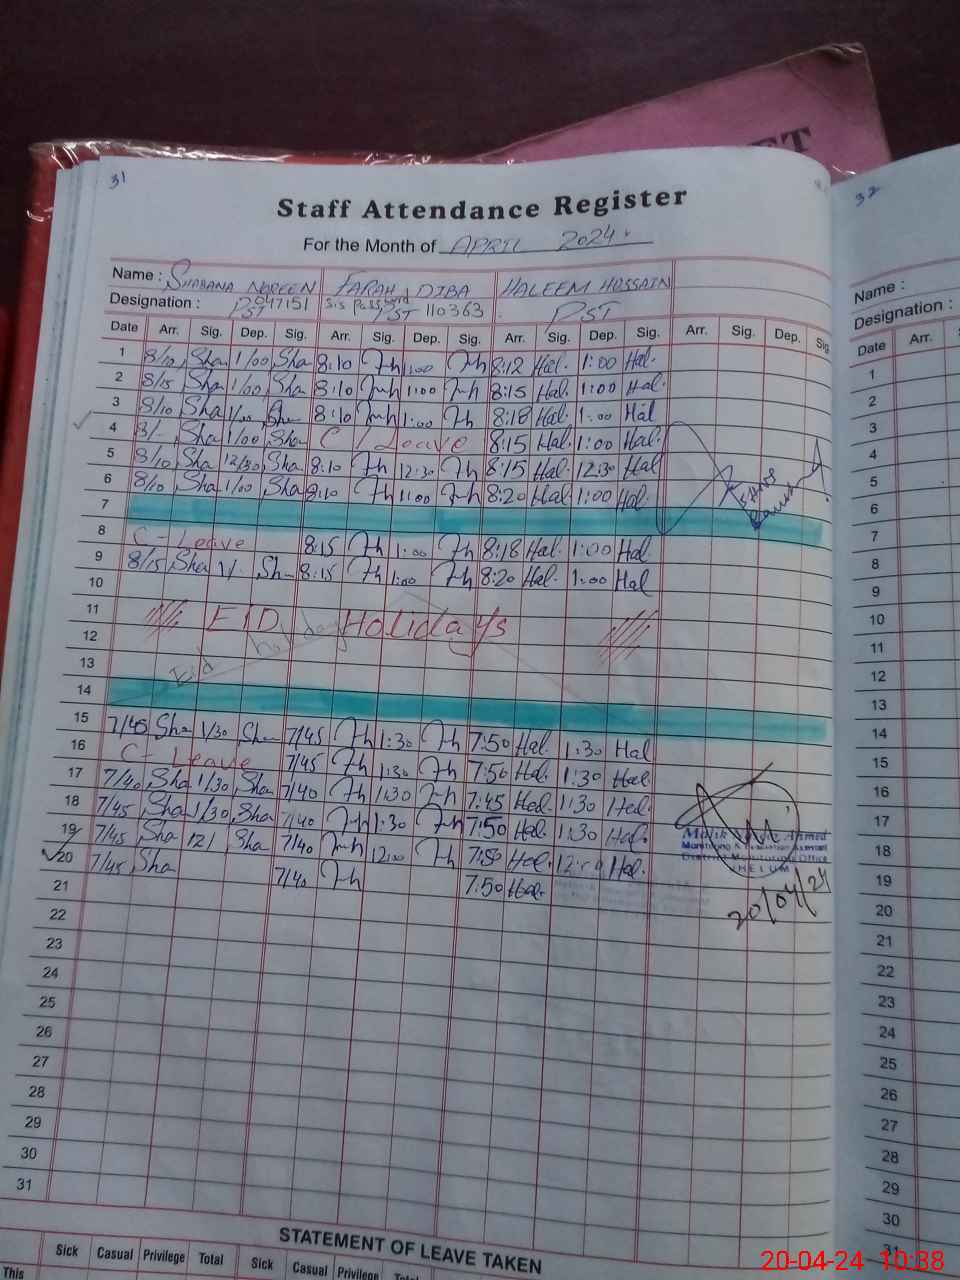 ET
31
32
Staff Attendance Register
For the Month of APRIL 2024
Name : SHABANA NOREEN FARAH DIBA HALEEM HOSSAIN
Name :
Designation : PST 047151 sis password PST 110363 PST
Designation :
Date Arr. Sig. Dep. Sig. Arr. Sig. Dep. Sig. Arr. Sig. Dep. Sig. Arr. Sig. Dep. Sig.
Date Arr.
1 8/10 Sha 1/00 Sha 8:10 1:00 8:12 Hal. 1:00 Hal.
2 8/15 Sha 1/00 Sha 8:10 1:00 8:15 Hal. 1:00 Hal.
3 8/10 Sha 1/00 Sha 8:10 1:00 8:18 Hal. 1:00 Hal
4 8/- Sha 1/00 Sha C / Leave 8:15 Hal. 1:00 Hal.
5 8/10 Sha 12/30 Sha 8:10 12:30 8:15 Hal. 12:30 Hal
6 8/10 Sha 1/00 Sha 8:10 1:00 8:20 Hal 1:00 Hal.
7
8 C - Leave 8:15 1:00 8:18 Hal. 1:00 Hal.
9 8/15 Sha 1/- Sh 8:15 1:00 8:20 Hal. 1:00 Hal
10
11 EID Holidays
12 Eid holiday
13
14
15 7/45 Sha 1/30 Sha 7/45 1:30 7:50 Hal. 1:30 Hal
16 C - Leave 7/45 1:30 7:50 Hal. 1:30 Hal.
17 7/40 Sha 1/30 Sha 7/40 1:30 7:45 Hal. 1:30 Hal.
18 7/45 Sha 1/30 Sha 7/40 1:30 7:50 Hal. 1:30 Hal.
19 7/45 Sha 12/ Sha 7/40 12:00 7:50 Hal. 12:00 Hal.
20 7/45 Sha 7/40 7:50 Hal.
21
22
23
24
25
26
27
28
29
30
31
Malik Ahmed
Monitoring & Evaluation Assistant
District Monitoring Office
JHELUM
20/04/24
1
2
3
4
5
6
7
8
9
10
11
12
13
14
15
16
17
18
19
20
21
22
23
24
25
26
27
28
29
30
31
STATEMENT OF LEAVE TAKEN
Sick Casual Privilege Total Sick Casual Privilege Total
This
20-04-24 10:38